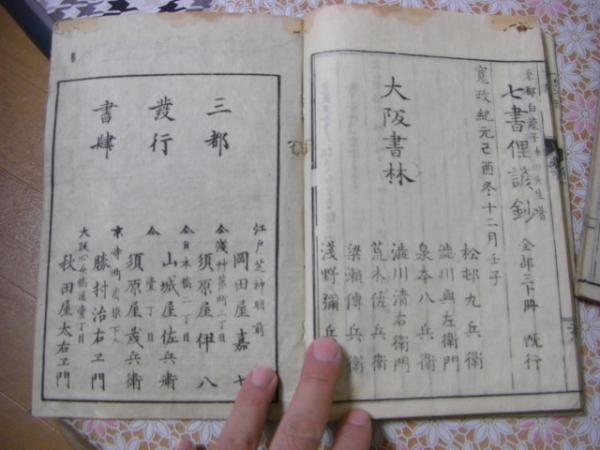 京都白龍子
七書俚諺鈔 全部三十冊 既行
寛政紀元己酉冬十二月壬子
大阪書林
松邨九兵衛
澁川與左衛門
泉本八兵衛
澁川清右衛門
荒木佐兵衛
梁瀬傳兵衛
淺野彌兵衛
三都
發行
書肆
江戸芝神明前
岡田屋嘉七
仝淺草茅町二丁目
須原屋伊八
仝日本橋二丁目
山城屋佐兵衛
仝壹丁目
須原屋茂兵衛
勝村治右エ門
大阪心斎橋通壹丁目
秋田屋太右エ門